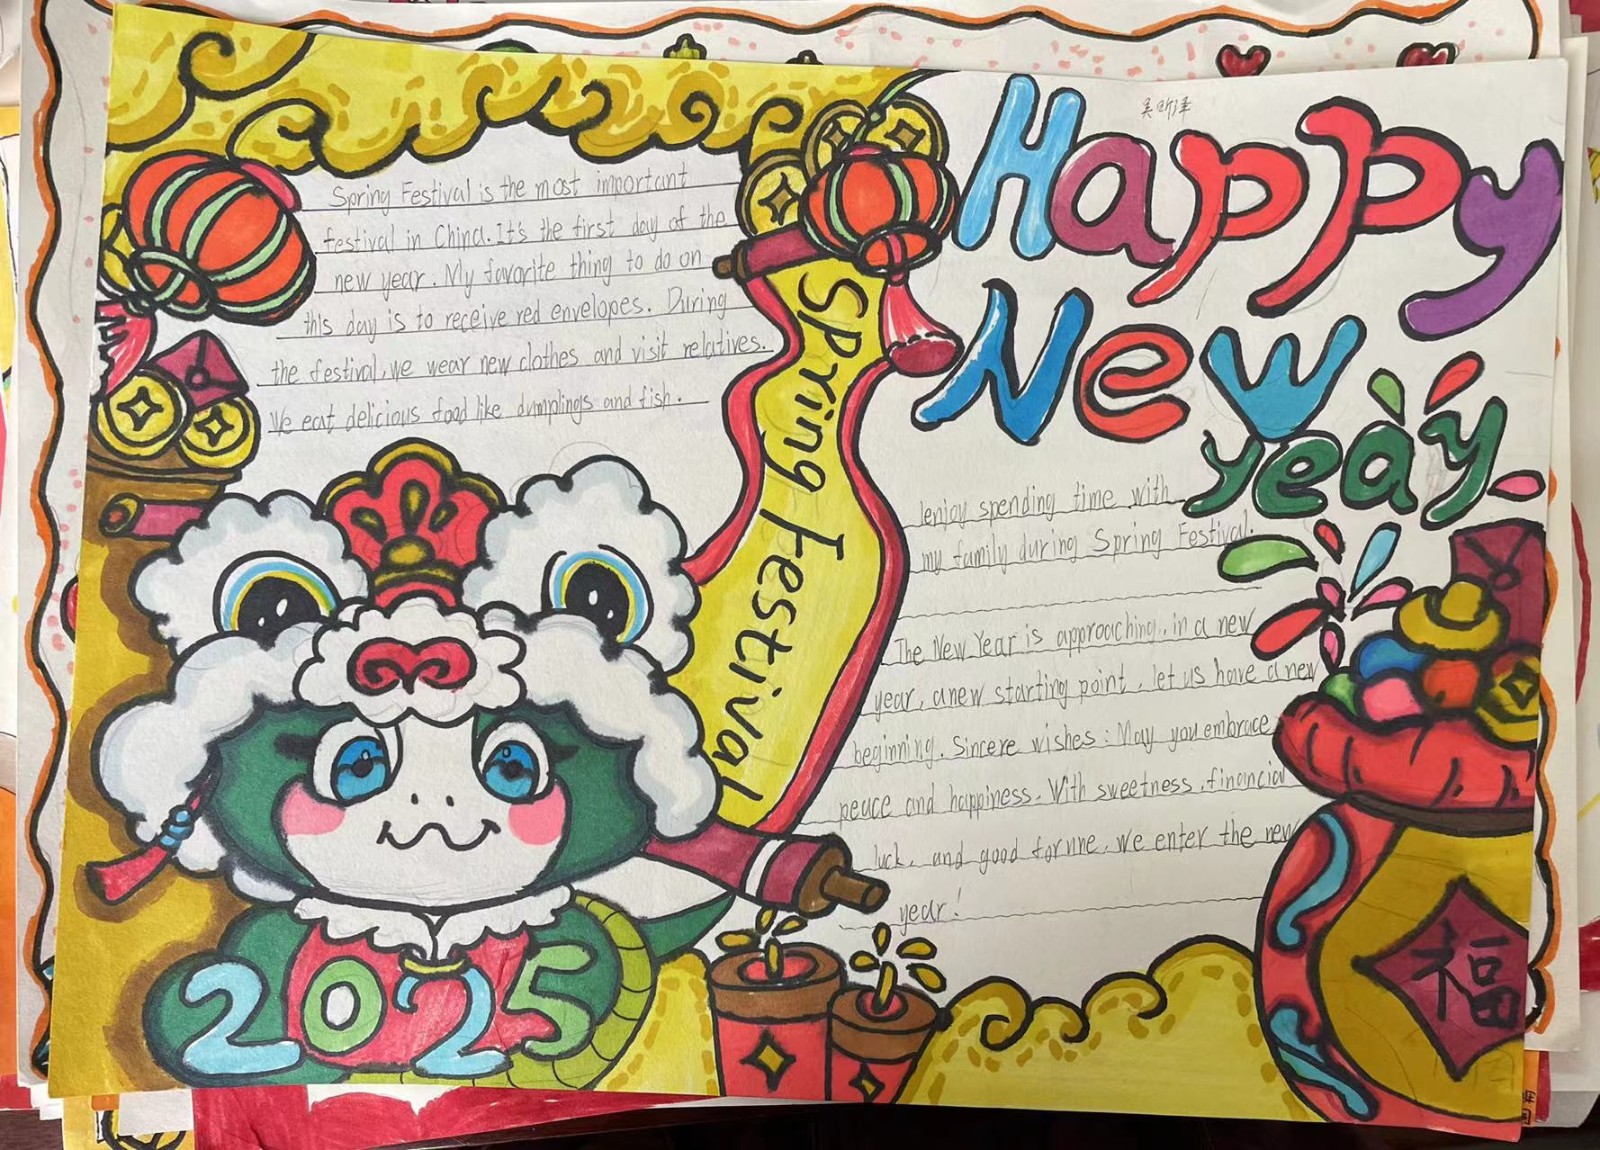 Spring Festival is the most important
festival in China. It's the first day of the
new year. My favorite thing to do on
this day is to receive red envelopes. During
the festival, we wear new clothes and visit relatives.
We eat delicious food like dumplings and fish.
Spring Festival
Happy
New
year
I enjoy spending time with
my family during Spring Festival.
The New Year is approaching, in a new
year, a new starting point, let us have a new
beginning. Sincere wishes: May you embrace
peace and happiness. With sweetness, financial
luck, and good fortune, we enter the new
year!
2025
福